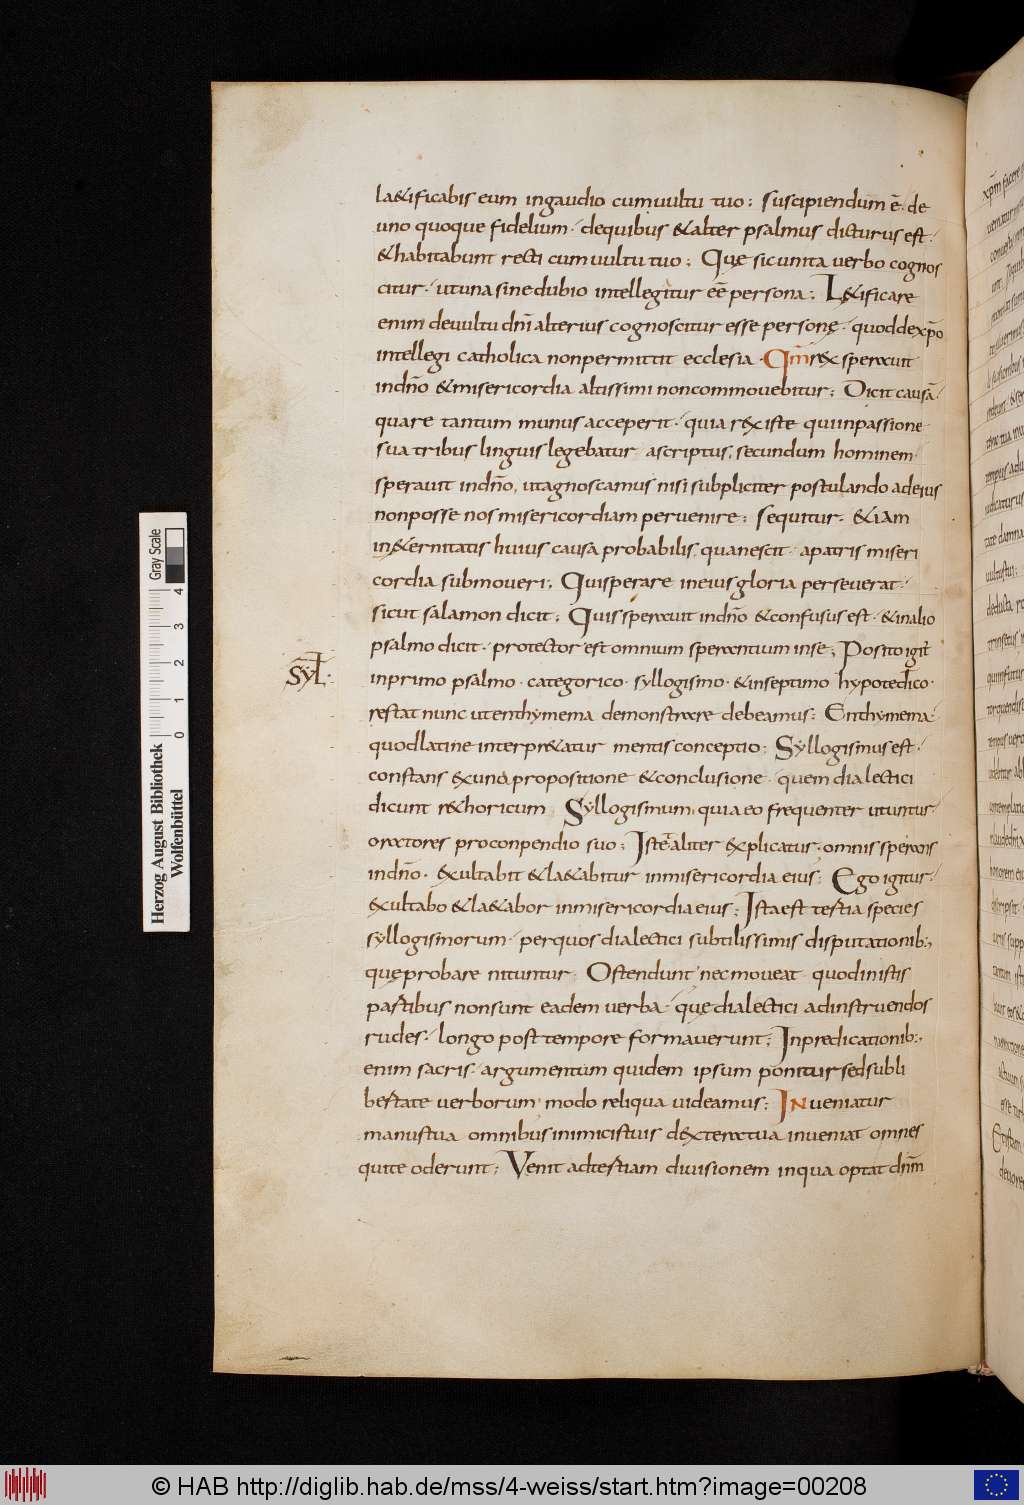 la&ificabis eum ingaudio cumuultu tuo; suscipiendum ē. de
uno quoque fidelium. dequibus &alter psalmus dicturus est.
&habitabunt recti cumuultu tuo; Quę sicunita verbo cognos
citur. utuna sinedubio intellegitur eē persona; L&ificare
enim deuultu dn̄i alterius cognoscitur esse personę. quodde xp̄o
intellegi catholica nonpermittit ecclesia. Qm̄ rex sperauit
indn̄o &misericordia altissimi noncommouebitur; Dicit causā.
quare tantum munus acceperit. quia rex iste quiinpassione
sua tribus linguis legebatur ascriptus, secundum hominem.
sperauit indn̄o, utagnoscamus nisi subpliciter postulando adeius
nonposse nos misericordiam peruenire; sequitur. &iam
in&ernitatis huius causa probabilis, quanescit. apatris miseri
cordia submoueri; Quisperare ineius gloria perseuerat.
sicut salamon dicit; Quis sperauit indn̄o &confusus est. &inalio
psalmo dicit. protector est omnium sperantium inse; Posito igit̄
SȳL.
inprimo psalmo. categorico. syllogismo. &inseptimo hypotedico.
restat nunc utenthymema demonstrare debeamus; Enthymema.
quodlatine interpr&atur mentis conceptio; Syllogismus est.
constans exuna propositione &conclusione. quem dialectici
dicunt r&horicum Syllogismum, quia eo frequenter utuntur
oratores proconpendio suo; Iste taliter explicatur. omnis sperans
indn̄o. exultabit &la&abitur inmisericordia eius; Ego igitur.
exultabo &la&abor inmisericordia eius; Ista est tertia species
syllogismorum. perquos dialectici subtilissimis disputationib;,
quę probare nituntur; Ostendunt nec moueat. quod inistis
partibus nonsunt eadem uerba. quę dialectici adinstruendos
rudes. longo post tempore formauerunt; Inpredicationib;,
enim sacris. argumentum quidem ipsum ponitur sedsubli
bertate uerborum. modo reliqua uideamus; INueniatur
manustua omnibus inimicistuis dextera tua inueniat omnes
quite oderunt; Venit adtertiam diuisionem inqua optat dn̄m
Herzog August Bibliothek
Wolfenbüttel
Gray Scale
0 1 2 3 4
© HAB http://diglib.hab.de/mss/4-weiss/start.htm?image=00208